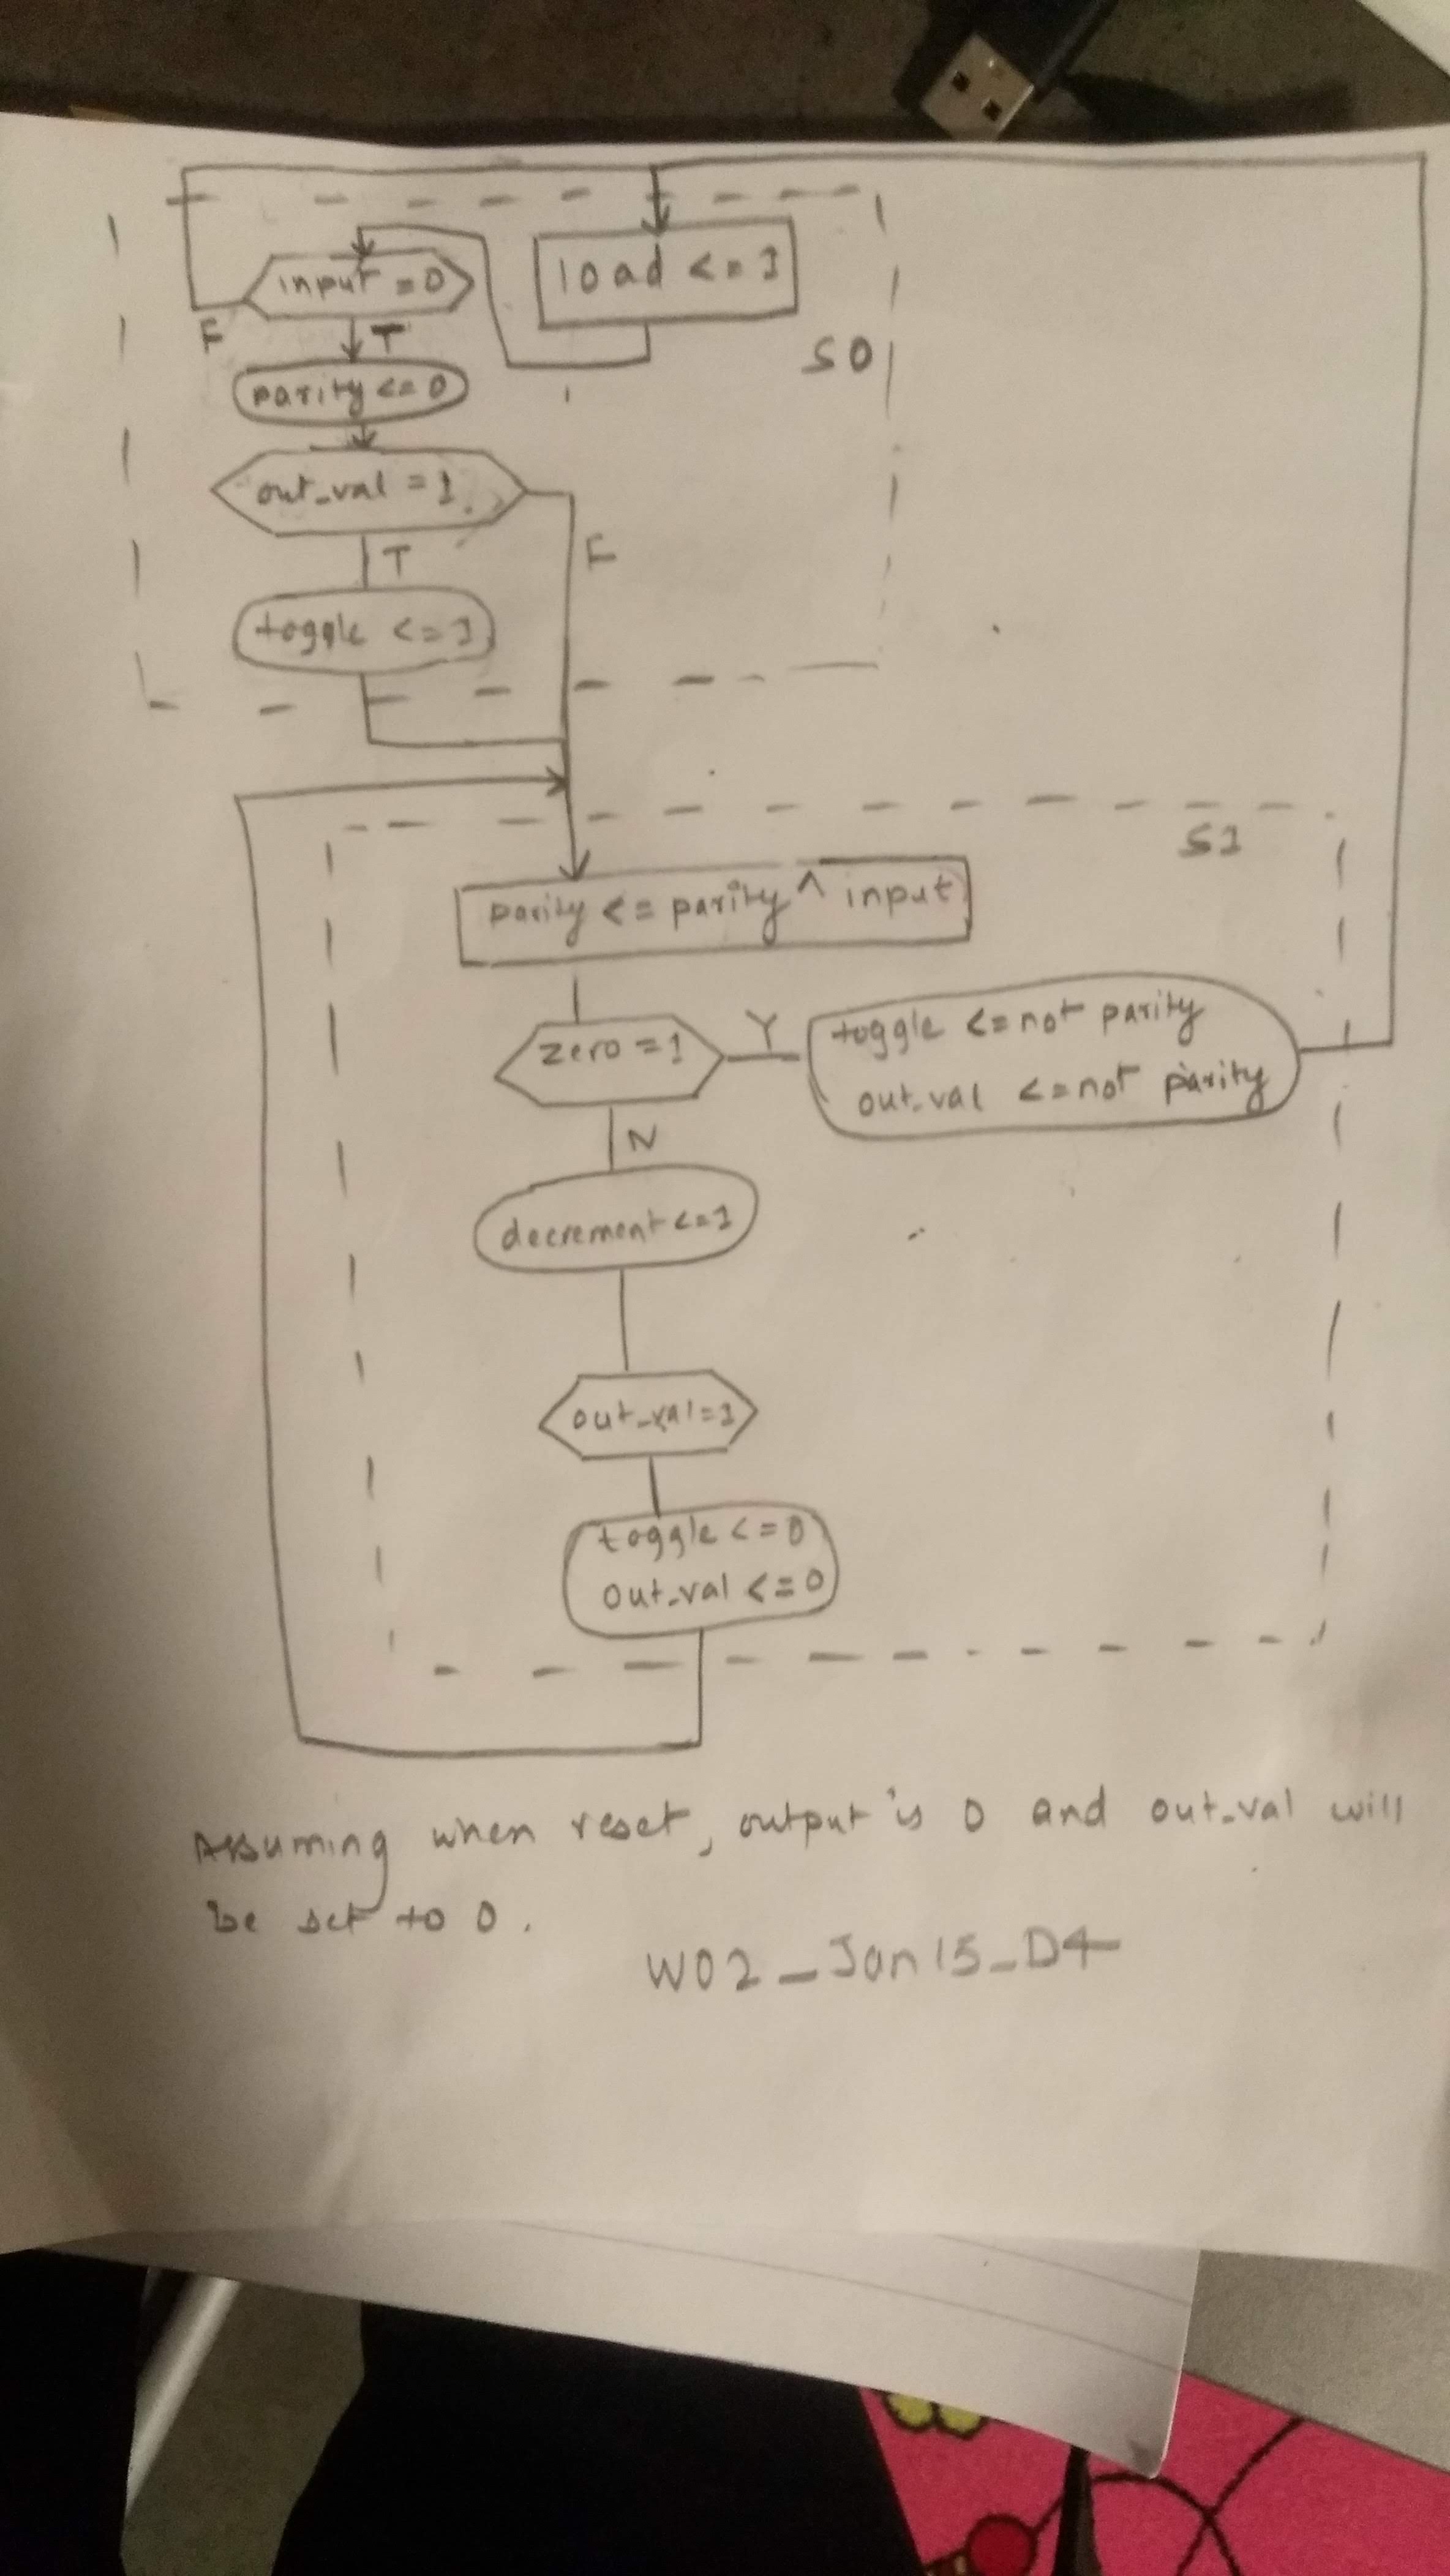 input = 0
load <= 1
F
T
S0
parity <= 0
out_val = 1
T
F
toggle <= 1
S1
parity <= parity ^ input
zero = 1
Y
toggle <= not parity
out_val <= not parity
N
decrement <= 1
out_val = 1
toggle <= 0
out_val <= 0
Assuming when reset, output is 0 and out_val will
be set to 0.
W02_Jan15_D4